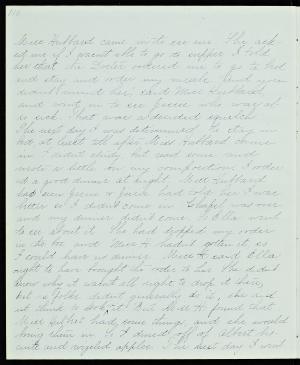 Miss Hubbard came in to see me. She ask-
ed me if I wasn't able to go to supper. I told
her that the Doctor ordered me to go to bed
and stay and order my meals (and you
didn't mind her) said Miss Hubbard
and went in to see Jessie who was al-
so sick. That was a decided squelch.
The next day I was determined to stay in
bed, at least till after Miss Hubbard came
in. I didn't study but read some and
wrote a little on my composition. I order-
ed a good dinner at night. Miss Hubbard
had seen Jessie & Jessie had told her I was
better so I didn't come in. Chapel was over
and my dinner didn't come. So Ella went
to see about it. She had dropped my order
in the box and Miss H hadn't gotten it so
I could have no dinner. Miss H said Ella
ought to have brought the order to her. She didn't
know why it wasn't all right to drop it there,
but
folks didn't generally do it, she
Miss H found that
Miss had some things and she would
bring them in. So I dined off of Albert bis-
cuits and apples. The next day I went